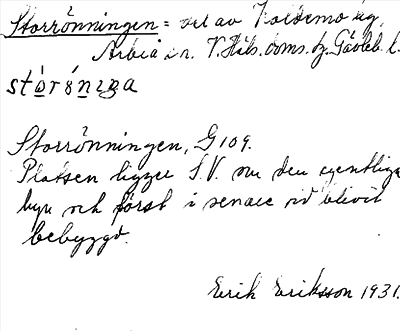 Storrönningen = del av Valsemo äg.
Arbrå sn. V. Häls. doms. hj. Gävleb. l.
stòrö́niŋa
Storrönningen, G 109.
Platsen ligger S.V. om den egentliga
byn och först i senare tid blivit
bebyggd.
Erik Eriksson 1931.